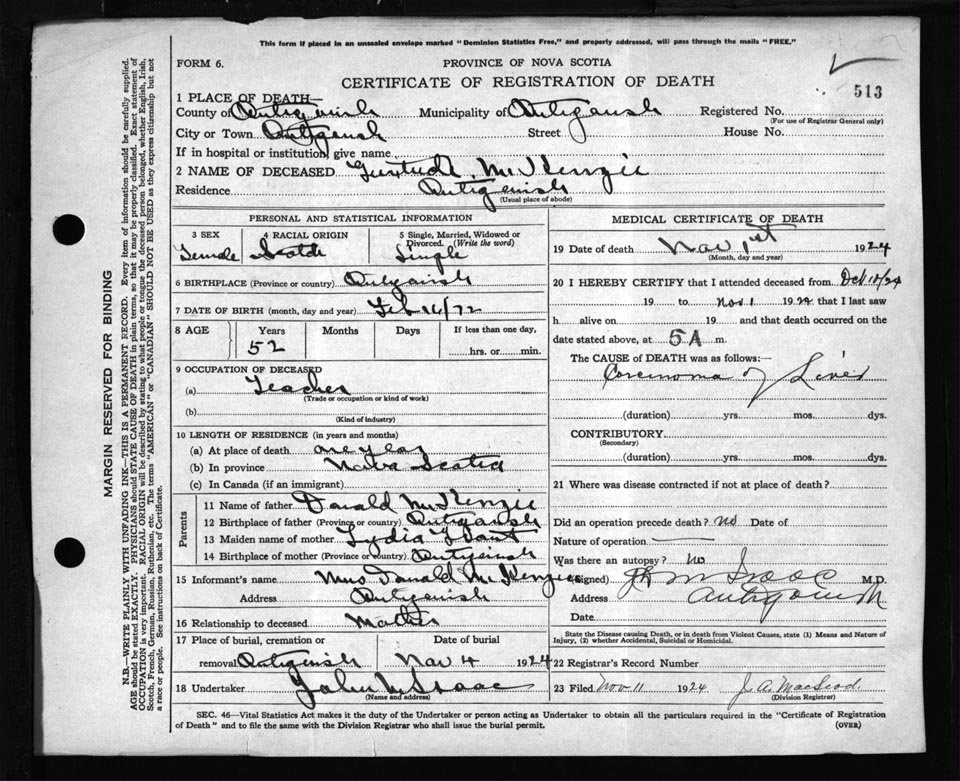 This form if placed in an unsealed envelope marked "Dominion Statistics Free," and properly addressed, will pass through the mails "FREE."
FORM 6. PROVINCE OF NOVA SCOTIA
CERTIFICATE OF REGISTRATION OF DEATH
513
1 PLACE OF DEATH—
County of Antigonish Municipality of Antigonish Registered No.
(For use of Registrar General only)
City or Town Antigonish Street House No.
If in hospital or institution, give name
2 NAME OF DECEASED Gertrude McKenzie
Residence Antigonish
(Usual place of abode)
PERSONAL AND STATISTICAL INFORMATION
3 SEX 4 RACIAL ORIGIN 5 Single, Married, Widowed or Divorced. (Write the word)
Female Scotch Single
6 BIRTHPLACE (Province or country) Antigonish
7 DATE OF BIRTH (month, day and year) Feb 16/72
8 AGE Years Months Days If less than one day,
52 hrs. or min.
9 OCCUPATION OF DECEASED
(a) Teacher
(Trade or occupation or kind of work)
(b)
(Kind of industry)
10 LENGTH OF RESIDENCE (in years and months)
(a) At place of death one year
(b) In province Nova Scotia
(c) In Canada (if an immigrant)
Parents
11 Name of father Donald McKenzie
12 Birthplace of father (Province or country) Antigonish
13 Maiden name of mother Lydia
14 Birthplace of mother (Province or country) Antigonish
15 Informant's name Mrs Donald McKenzie
Address Antigonish
16 Relationship to deceased Mother
17 Place of burial, cremation or Date of burial
removal Antigonish Nov 4 1924
18 Undertaker John McIsaac
(Name and address)
MEDICAL CERTIFICATE OF DEATH
19 Date of death Nov 1st 1924
(Month, day and year)
20 I HEREBY CERTIFY that I attended deceased from Oct 10/24
19 to Nov 1 1924 that I last saw
h alive on 19 and that death occurred on
date stated above, at 5 A m.
The CAUSE of DEATH was as follows:—
Carcinoma of Liver
(duration) yrs. mos. dys.
CONTRIBUTORY
(Secondary)
(duration) yrs. mos. dys.
21 Where was disease contracted if not at place of death?
Did an operation precede death? no Date of
Nature of operation
Was there an autopsy? no
(Signed) McIsaac M.D.
Address Antigonish
Date
State the Disease causing Death, or in death from Violent Causes, state (1) Means and Nature of
Injury, (2) whether Accidental, Suicidal or Homicidal.
22 Registrar's Record Number
23 Filed Nov. 11 1924 J. A. MacLeod.
(Division Registrar)
SEC. 46—Vital Statistics Act makes it the duty of the Undertaker or person acting as Undertaker to obtain all the particulars required in the "Certificate of Registration
of Death" and to file the same with the Division Registrar who shall issue the burial permit. (OVER)
MARGIN RESERVED FOR BINDING
N.B.—WRITE PLAINLY WITH UNFADING INK—THIS IS A PERMANENT RECORD. Every item of information should be carefully supplied.
AGE should be stated EXACTLY. PHYSICIANS should STATE CAUSE OF DEATH in plain terms, so that it may be properly classified. Exact statement of
OCCUPATION is very important. RACIAL ORIGIN will be described by stating to what people or tongue the deceased person belonged, whether English, Irish,
Scotch, French, German, Russian, Ruthenian, etc. The terms "AMERICAN" or "CANADIAN" SHOULD NOT BE USED as they express citizenship but not
a race or people. See instructions on back of Certificate.